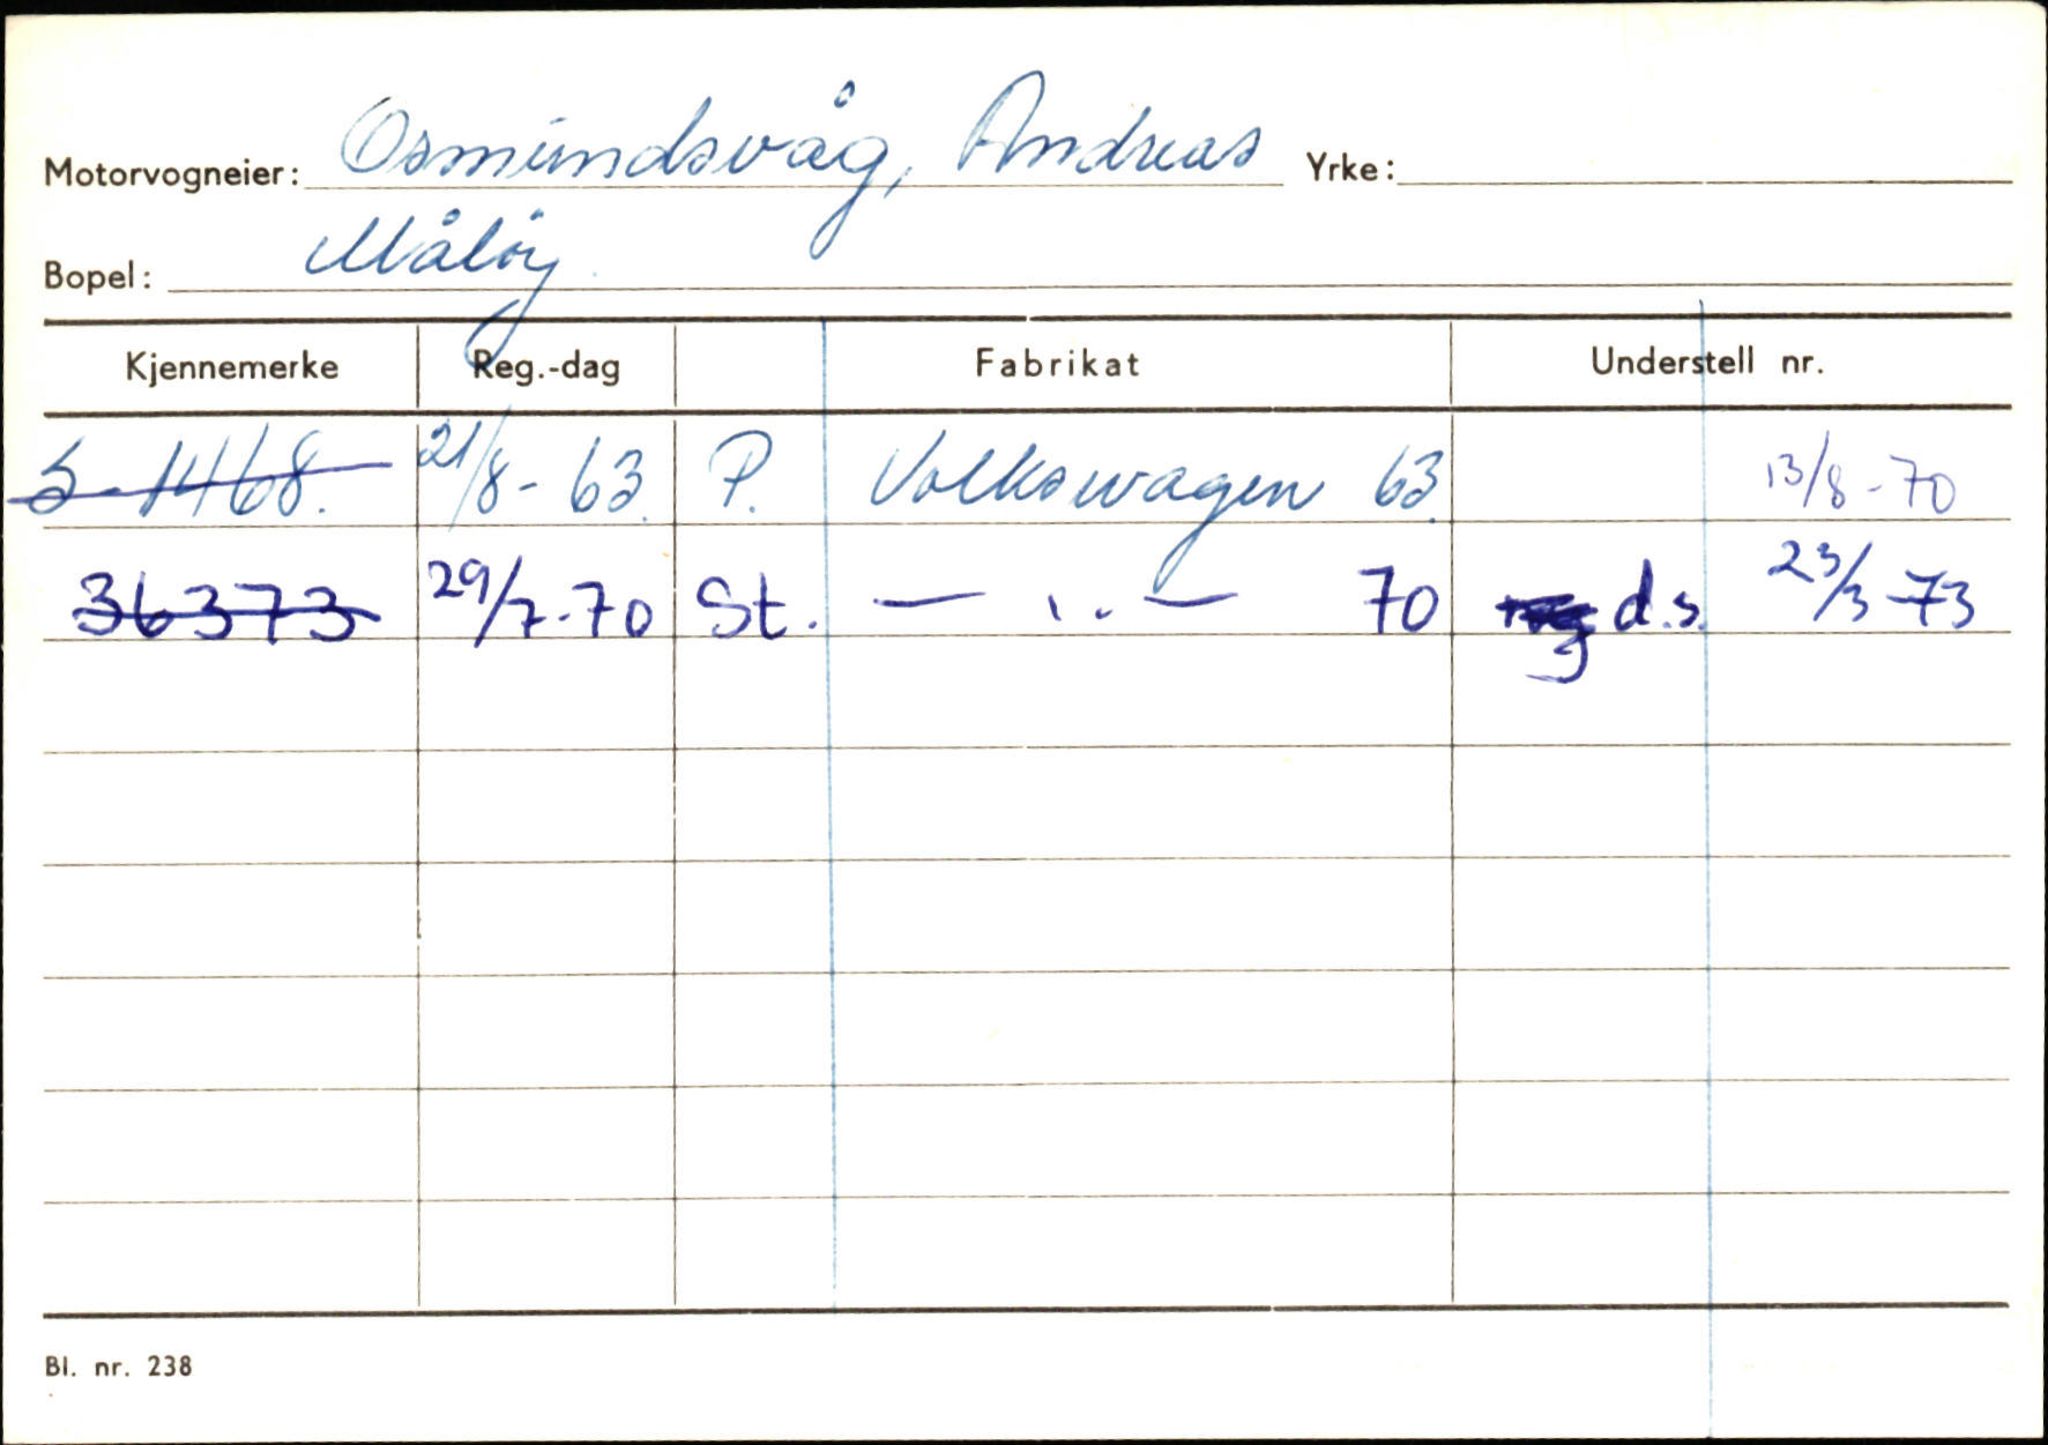 Motorvogneier: Osmundsvåg, Andreas Yrke:
Bopel: Måløy
Kjennemerke Reg.-dag Fabrikat Understell nr.
S-1468. 21/8-63. P. Volkswagen 63. 13/8-70
36373 29/7-70 St. — ,, — 70 d.s. 23/3-73
Bl. nr. 238